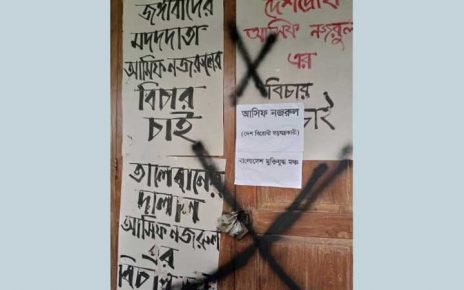 জঙ্গীবাদের
মদদদাতা
আসিফ নজরুলের
বিচার
চাই
দেশদ্রোহী
আসিফ নজরুল
এর
বিচার
চাই
আসিফ নজরুল
(দেশ বিরোধী ষড়যন্ত্রকারী)
বাংলাদেশ মুক্তিযুদ্ধ মঞ্চ
তালেবানের
দালাল
আসিফ নজরুল
এর
বিচার চাই